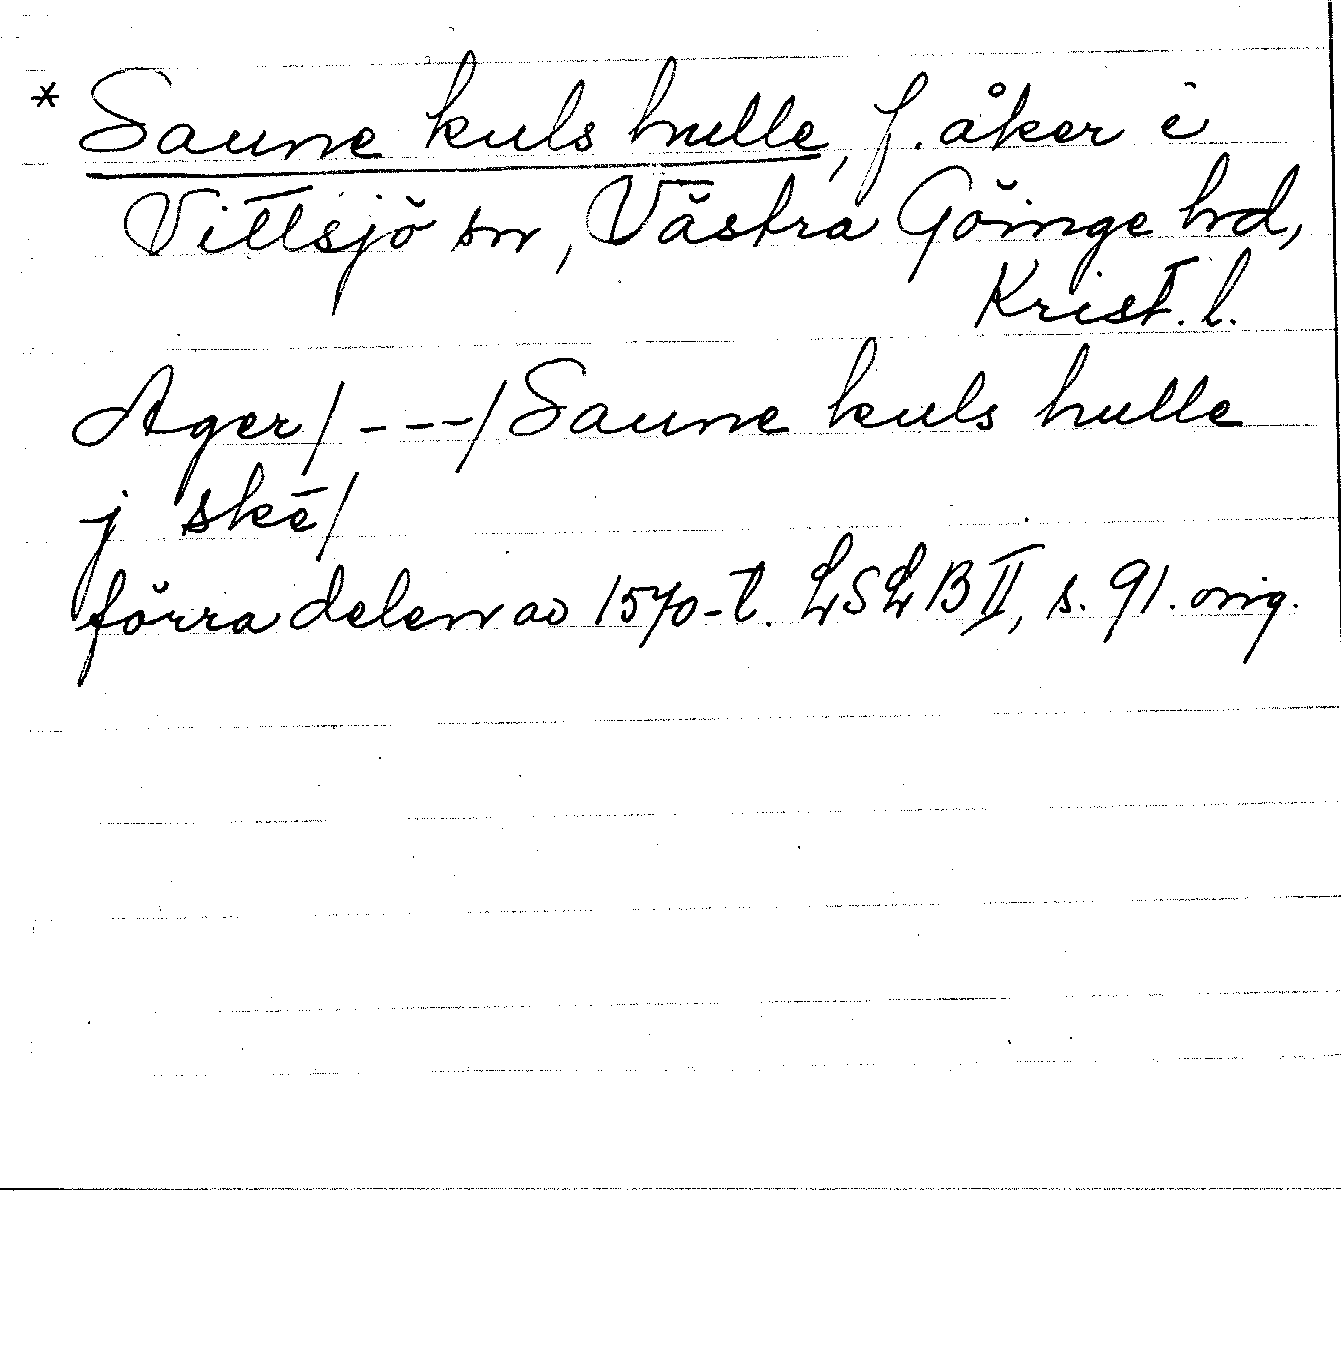 * Saune kuls hulle, f. åker i
Vittsjö sn, Västra Göinge hd,
Krist. l.
Ager/ - - -/ Saune kuls hulle
j skē/
förra delen av 1570-t. LSLB II, s. 91. orig.